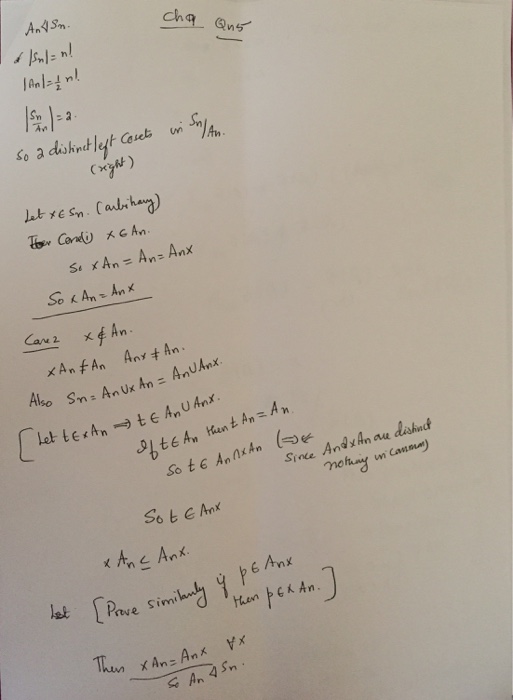 Ch 9 Qn 5
An ⊲ Sn.
|Sn| = n!
|An| = ½ n!
|Sn/An| = 2.
So 2 distinct left cosets in Sn/An.
(right)
Let x ∈ Sn. (arbitrary)
Case(i) x ∈ An.
So xAn = An = Anx
So xAn = Anx
Case 2 x ∉ An.
xAn ≠ An Anx ≠ An.
Also Sn = An ∪ xAn = An ∪ Anx.
[ Let t ∈ xAn ⟹ t ∈ An ∪ Anx.
If t ∈ An then tAn = An.
So t ∈ An ∩ xAn (⇒⇐
Since An & xAn are distinct
nothing in common)
So t ∈ Anx
xAn ⊆ Anx.
[Prove similarly if p ∈ Anx
then p ∈ xAn. ]
Then xAn = Anx ∀x
So An ⊲ Sn.